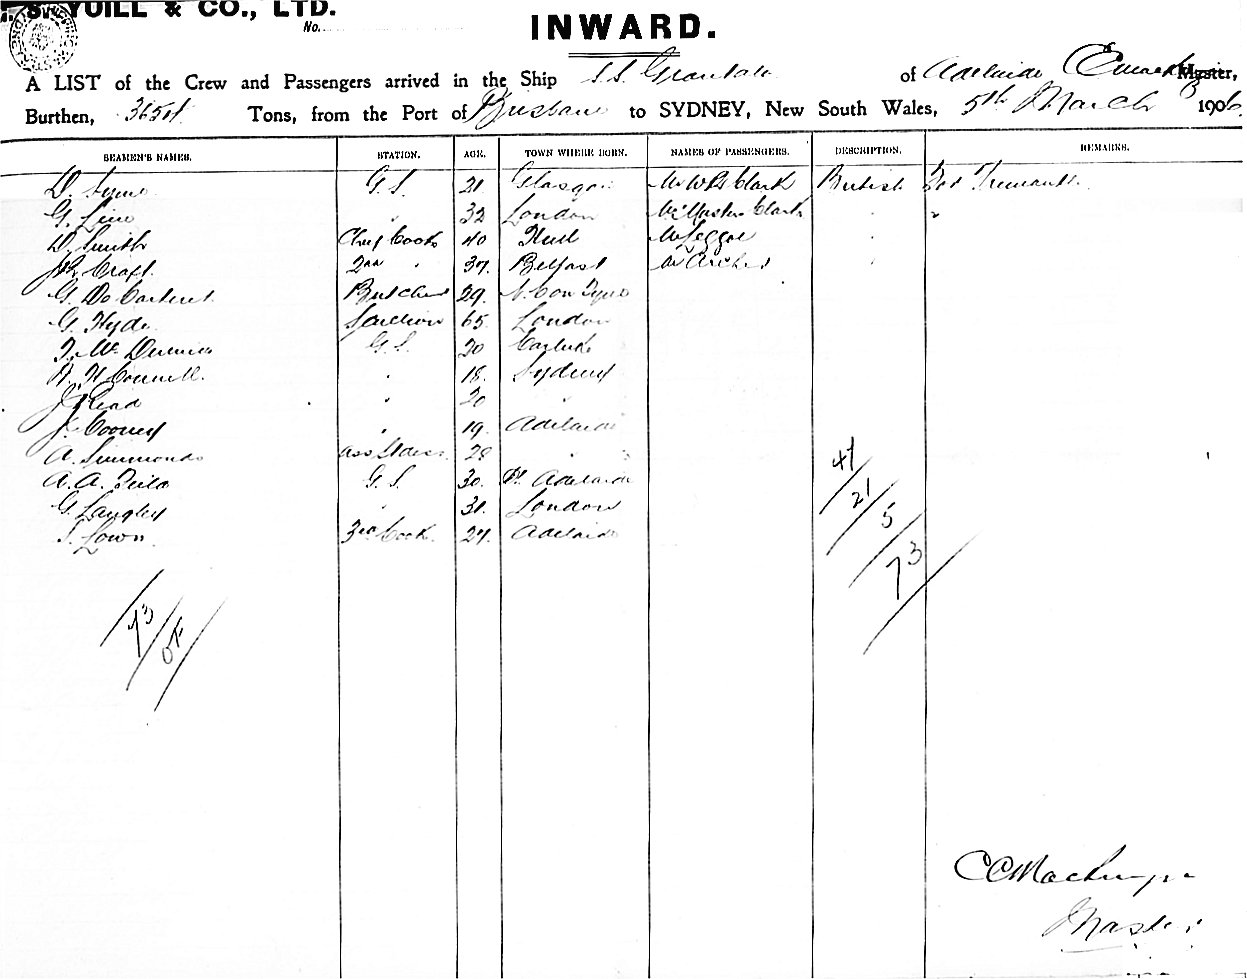 S. YUILL & CO., LTD.
No.
INWARD.
A LIST of the Crew and Passengers arrived in the Ship S.S. Grantala of Adelaide Master,
Burthen, 3654 Tons, from the Port of Brisbane to SYDNEY, New South Wales, 5th March 1906
SEAMEN'S NAMES. STATION. AGE. TOWN WHERE BORN. NAMES OF PASSENGERS. DESCRIPTION. REMARKS.
D. Syme G.S. 21 Glasgow Mr W Clark British For Fremantle
G. " 32 London Master Clark " "
D. Smith Chief Cook 40 Hull Mr Leggoe "
Craft 2nd " 37 Belfast Mr Archer "
G. De Carteret Butcher 29 N.C on Tyne
G. Hyde 65 London
G.S. 20
Connell " 18 Sydney
J. Read " 20 "
J. Cooney " 19 Adelaide
A. Simmonds Ass Stdess 28 "
A. A. G.S. 30 Pt Adelaide
G. Langley " 31 London
Lown 3rd Cook 27 Adelaide
47
21
5
73
73
Master